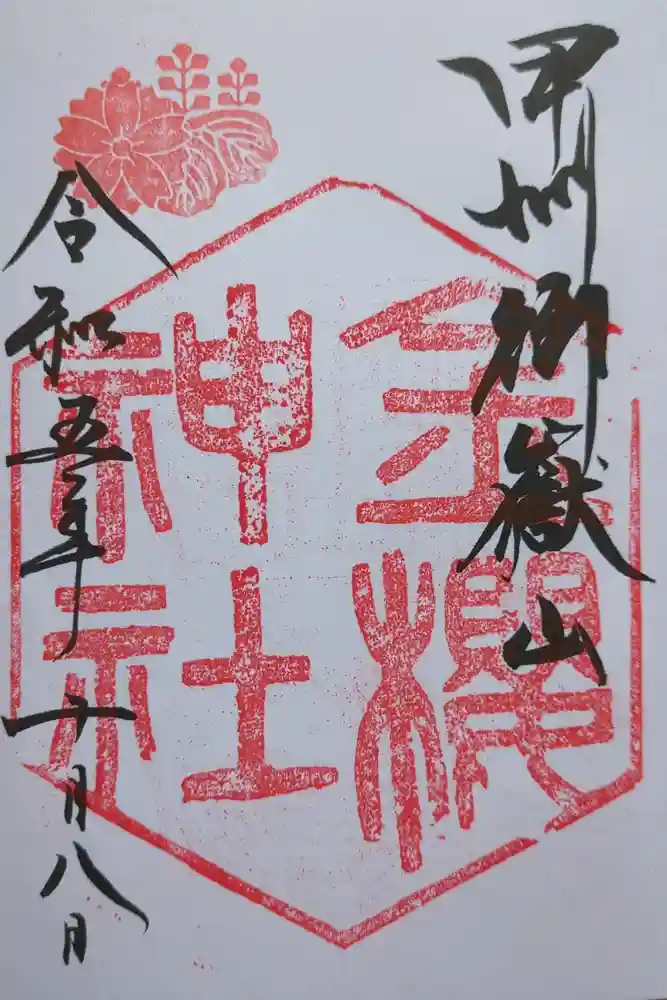 甲州御嶽山
金櫻
神社
令和五年十月八日